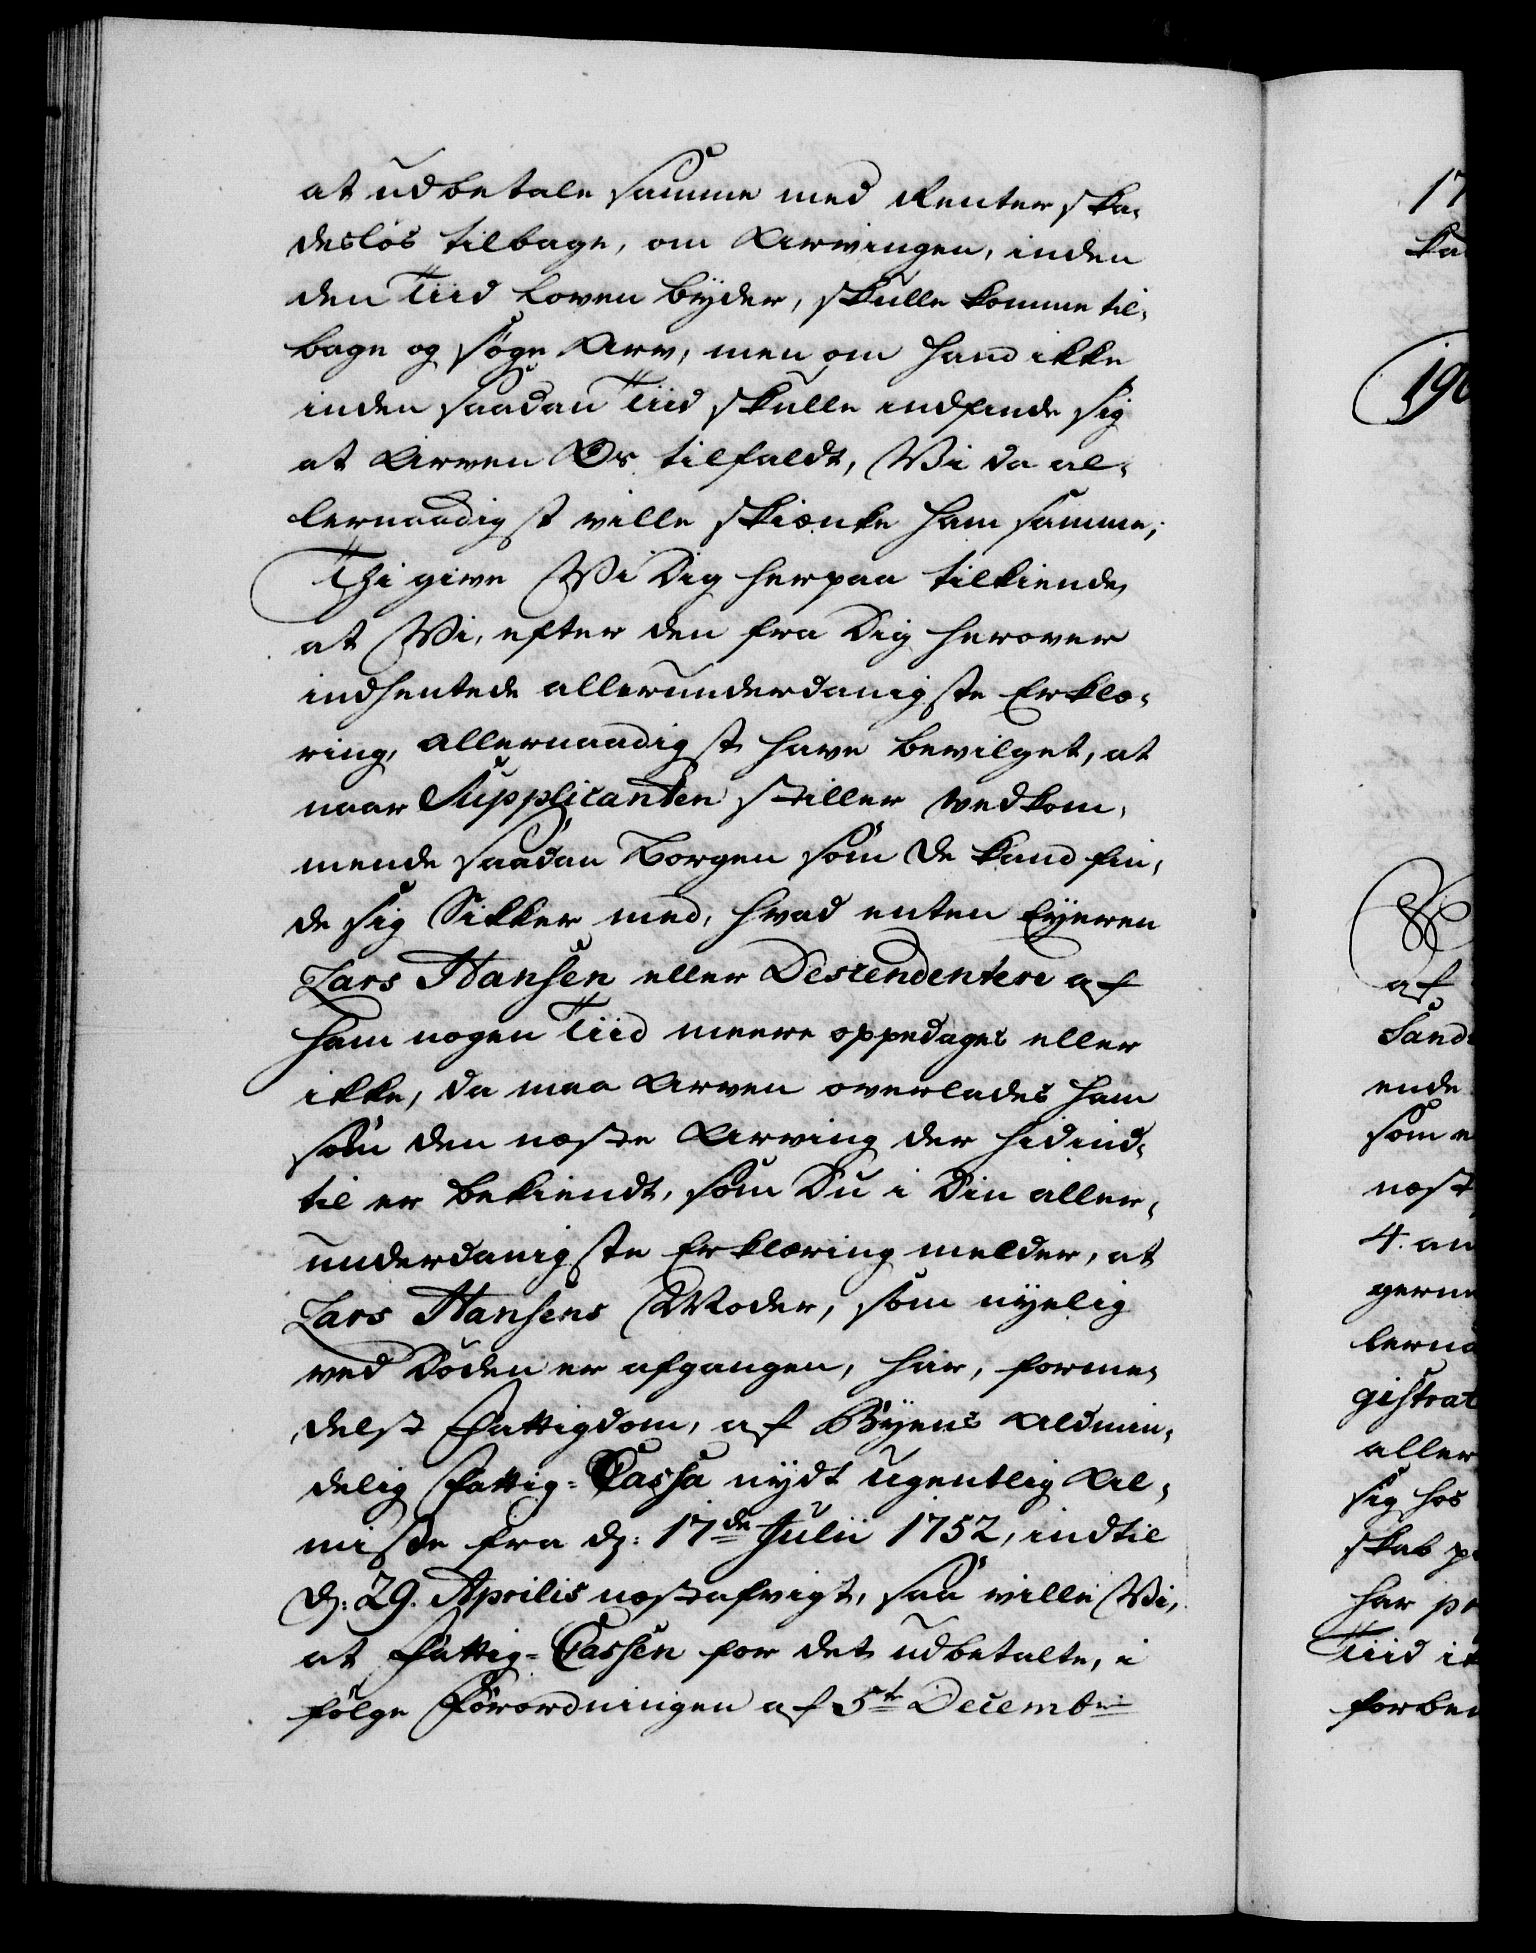 at udbetale samme med Renter ska-
deslös tilbage, om Arvingen, inden
den Tiid Loven byder, skulle komme til-
bage og søge Arv, men om hand ikke
inden saadan Tiid skulle indfinde sig
at Arven Os tilfaldt, Wi da al-
lernaadigst ville skiænke ham samme;
Thi give Wi Dig herpaa tilkiende,
at Wi, efter den fra Dig herover
indhentede allerunderdanigste Erklæ-
ring, allernaadigst have bevilget, at
naar Supplicanten stiller vedkom-
mende saadan Borgen som de kand fin-
de sig Sikker med, hvad enten Eyeren
Lars Hansen eller Descendentere af
ham nogen Tiid meere oppedages eller
ikke, da maa Arven overlades ham
som den næste Arving der hidind-
til er bekiendt, som Du i Din aller-
underdanigste Erklæring melder, at
Lars Hansens Moder, som nyelig
ved Döden er afgangen, har, forme-
delst Fattigdom, af Byens Aldmin-
delig Fattig-Cassa nydt ugentlig Al-
misse fra d: 17de Julii 1752, indtil
d: 29. Aprilis næstafvigt, saa ville Wi,
at Fattig-Cassen for det udbetalte, i
fölge Forordningen af 5te Decembr
17
190
af
Sand
ende
som
næst
4. an
gern
lerna
gistrat
aller
sig hos
skab
har
Tiid
forbe